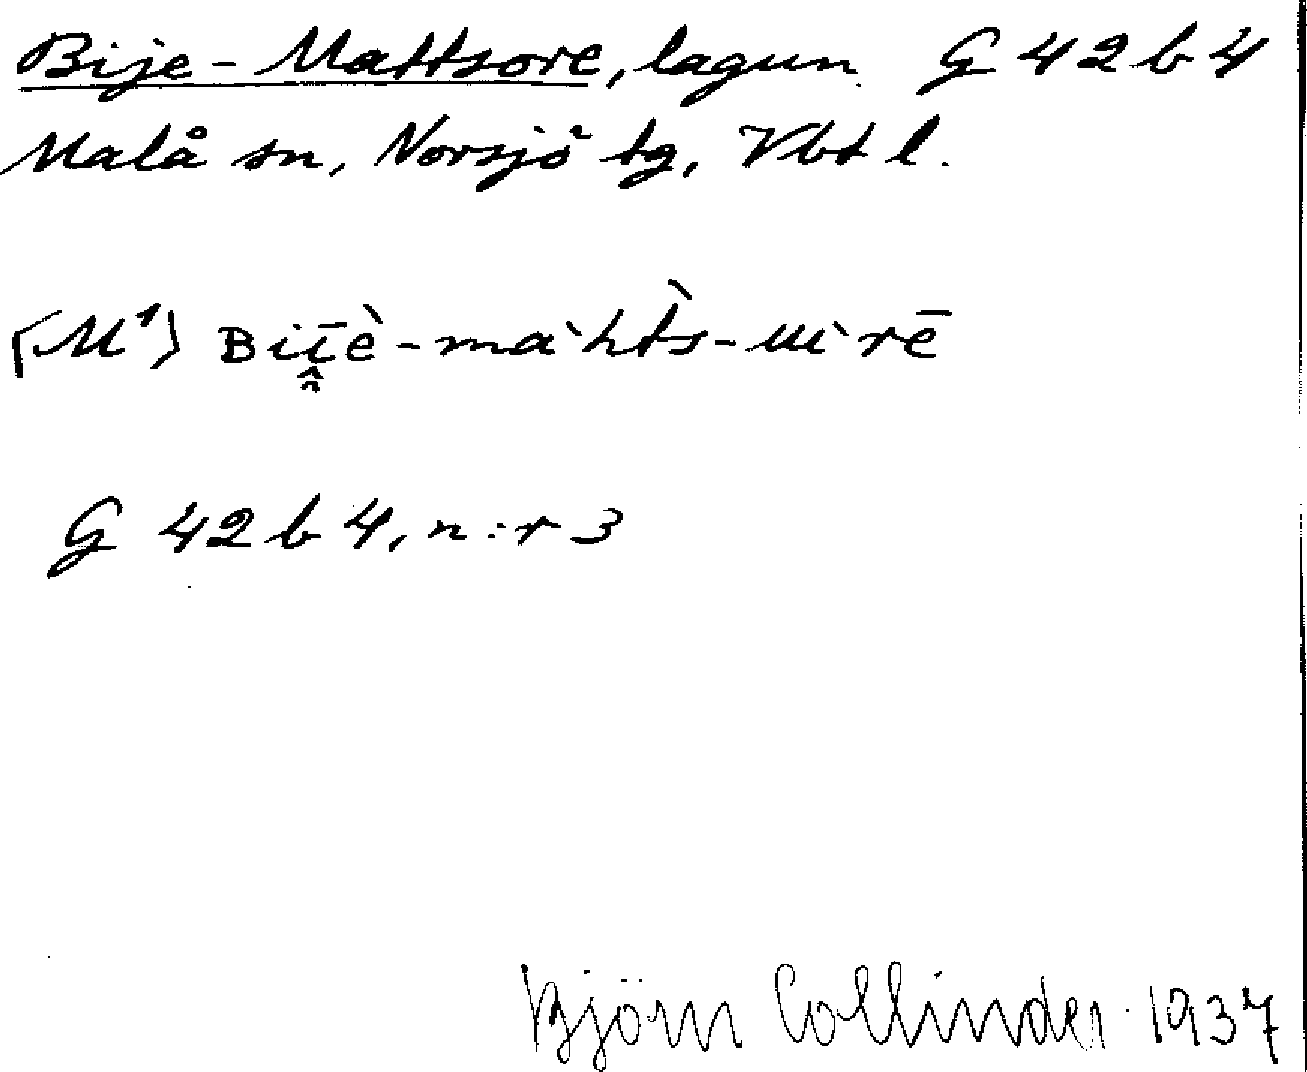 Bije-Mattsore, lagun G 42 b 4
Malå sn, Norsjö tg, Vbt l.
(M¹)
G 42 b 4, n:r 3
Björn Collinder 1937